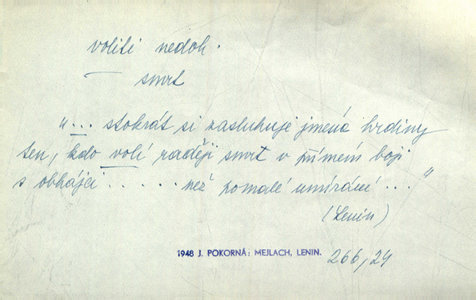 voliti nedok.
smrt
„... stokrát si zasluhuje jména hrdiny
ten, kdo volí raději smrt v přímém boji
s obhájci ...... než pomalé umírání ..."
(Lenin)
1948 J. POKORNÁ: MEJLACH, LENIN. 266,24